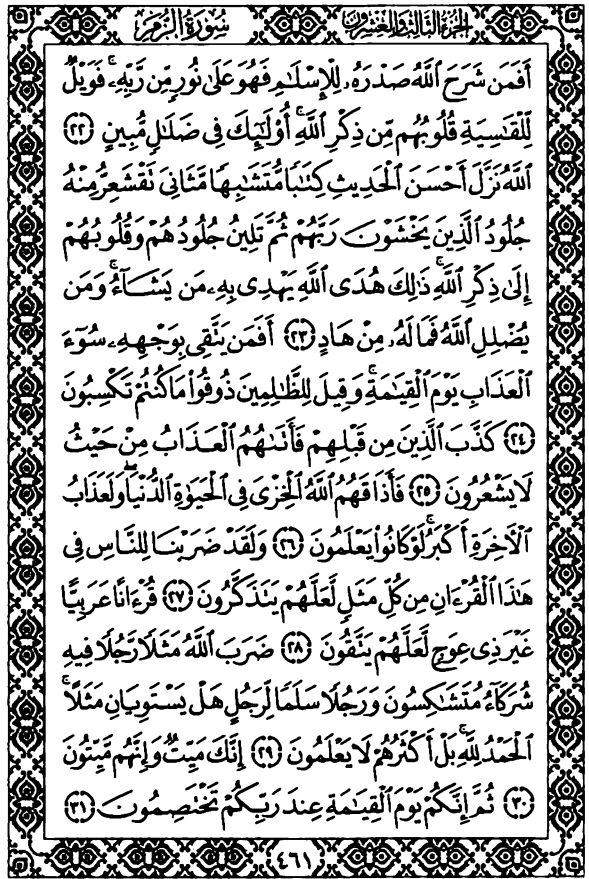 الجزء الثالث والعشرون سورة الزمر
أَفَمَن شَرَحَ ٱللَّهُ صَدْرَهُۥ لِلْإِسْلَٰمِ فَهُوَ عَلَىٰ نُورٍ مِّن رَّبِّهِۦ ۚ فَوَيْلٌ
لِّلْقَٰسِيَةِ قُلُوبُهُم مِّن ذِكْرِ ٱللَّهِ ۚ أُو۟لَٰٓئِكَ فِى ضَلَٰلٍ مُّبِينٍ ﴿٢٢﴾
ٱللَّهُ نَزَّلَ أَحْسَنَ ٱلْحَدِيثِ كِتَٰبًا مُّتَشَٰبِهًا مَّثَانِىَ تَقْشَعِرُّ مِنْهُ
جُلُودُ ٱلَّذِينَ يَخْشَوْنَ رَبَّهُمْ ثُمَّ تَلِينُ جُلُودُهُمْ وَقُلُوبُهُمْ
إِلَىٰ ذِكْرِ ٱللَّهِ ۚ ذَٰلِكَ هُدَى ٱللَّهِ يَهْدِى بِهِۦ مَن يَشَآءُ ۚ وَمَن
يُضْلِلِ ٱللَّهُ فَمَا لَهُۥ مِنْ هَادٍ ﴿٢٣﴾ أَفَمَن يَتَّقِى بِوَجْهِهِۦ سُوٓءَ
ٱلْعَذَابِ يَوْمَ ٱلْقِيَٰمَةِ ۚ وَقِيلَ لِلظَّٰلِمِينَ ذُوقُوا۟ مَا كُنتُمْ تَكْسِبُونَ
﴿٢٤﴾ كَذَّبَ ٱلَّذِينَ مِن قَبْلِهِمْ فَأَتَىٰهُمُ ٱلْعَذَابُ مِنْ حَيْثُ
لَا يَشْعُرُونَ ﴿٢٥﴾ فَأَذَاقَهُمُ ٱللَّهُ ٱلْخِزْىَ فِى ٱلْحَيَوٰةِ ٱلدُّنْيَا ۖ وَلَعَذَابُ
ٱلْءَاخِرَةِ أَكْبَرُ ۚ لَوْ كَانُوا۟ يَعْلَمُونَ ﴿٢٦﴾ وَلَقَدْ ضَرَبْنَا لِلنَّاسِ فِى
هَٰذَا ٱلْقُرْءَانِ مِن كُلِّ مَثَلٍ لَّعَلَّهُمْ يَتَذَكَّرُونَ ﴿٢٧﴾ قُرْءَانًا عَرَبِيًّا
غَيْرَ ذِى عِوَجٍ لَّعَلَّهُمْ يَتَّقُونَ ﴿٢٨﴾ ضَرَبَ ٱللَّهُ مَثَلًا رَّجُلًا فِيهِ
شُرَكَآءُ مُتَشَٰكِسُونَ وَرَجُلًا سَلَمًا لِّرَجُلٍ هَلْ يَسْتَوِيَانِ مَثَلًا ۚ
ٱلْحَمْدُ لِلَّهِ ۚ بَلْ أَكْثَرُهُمْ لَا يَعْلَمُونَ ﴿٢٩﴾ إِنَّكَ مَيِّتٌ وَإِنَّهُم مَّيِّتُونَ
﴿٣٠﴾ ثُمَّ إِنَّكُمْ يَوْمَ ٱلْقِيَٰمَةِ عِندَ رَبِّكُمْ تَخْتَصِمُونَ ﴿٣١﴾
٤٦١